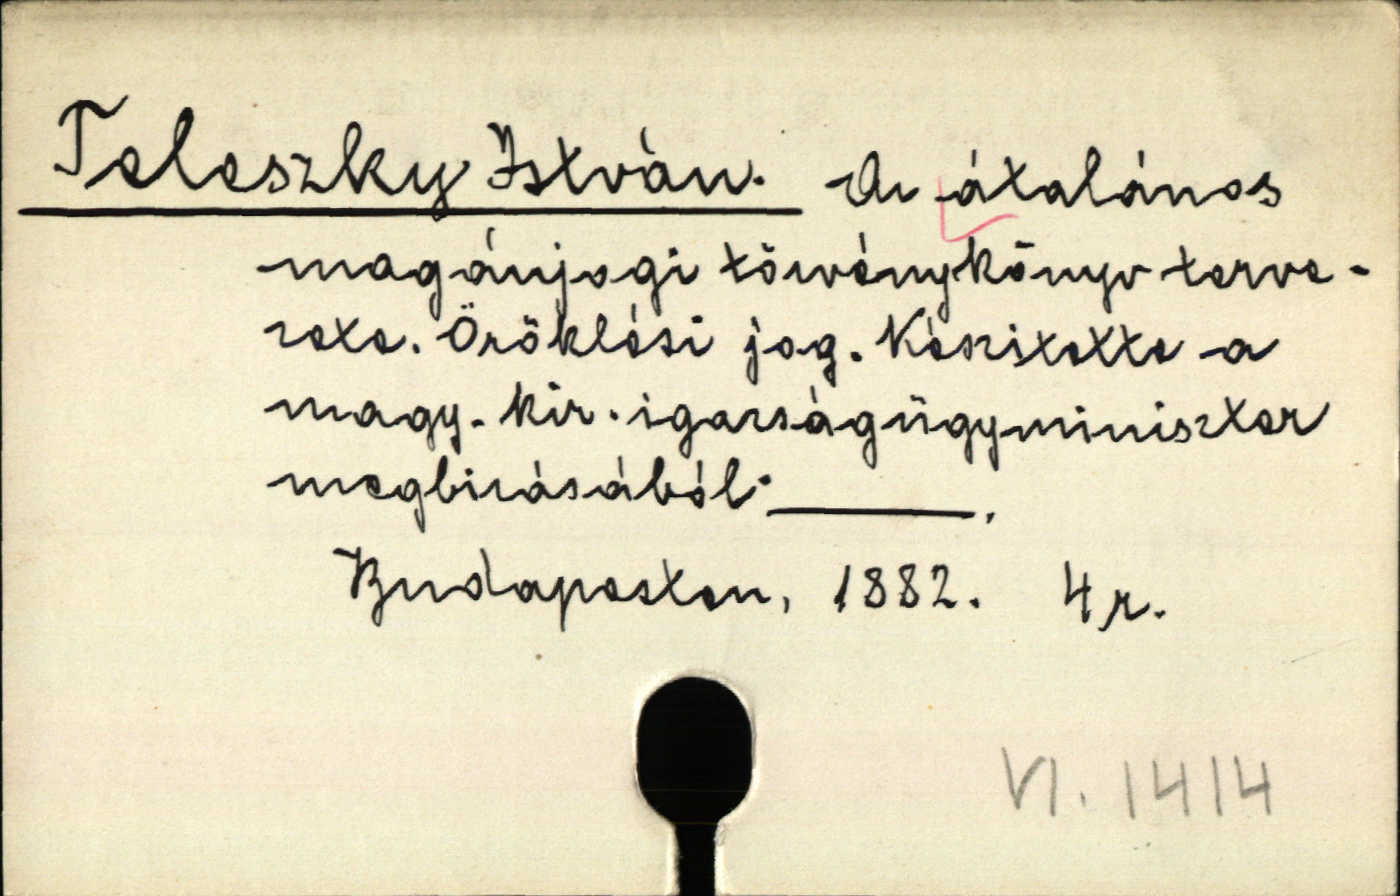 Teleszky István. Az átalános
magánjogi törvénykönyv terve-
zete. Öröklési jog. Készitette a
magy. kir. igazságügyminiszter
megbizásából ———.
Budapesten, 1882. 4r.
VI. 1414